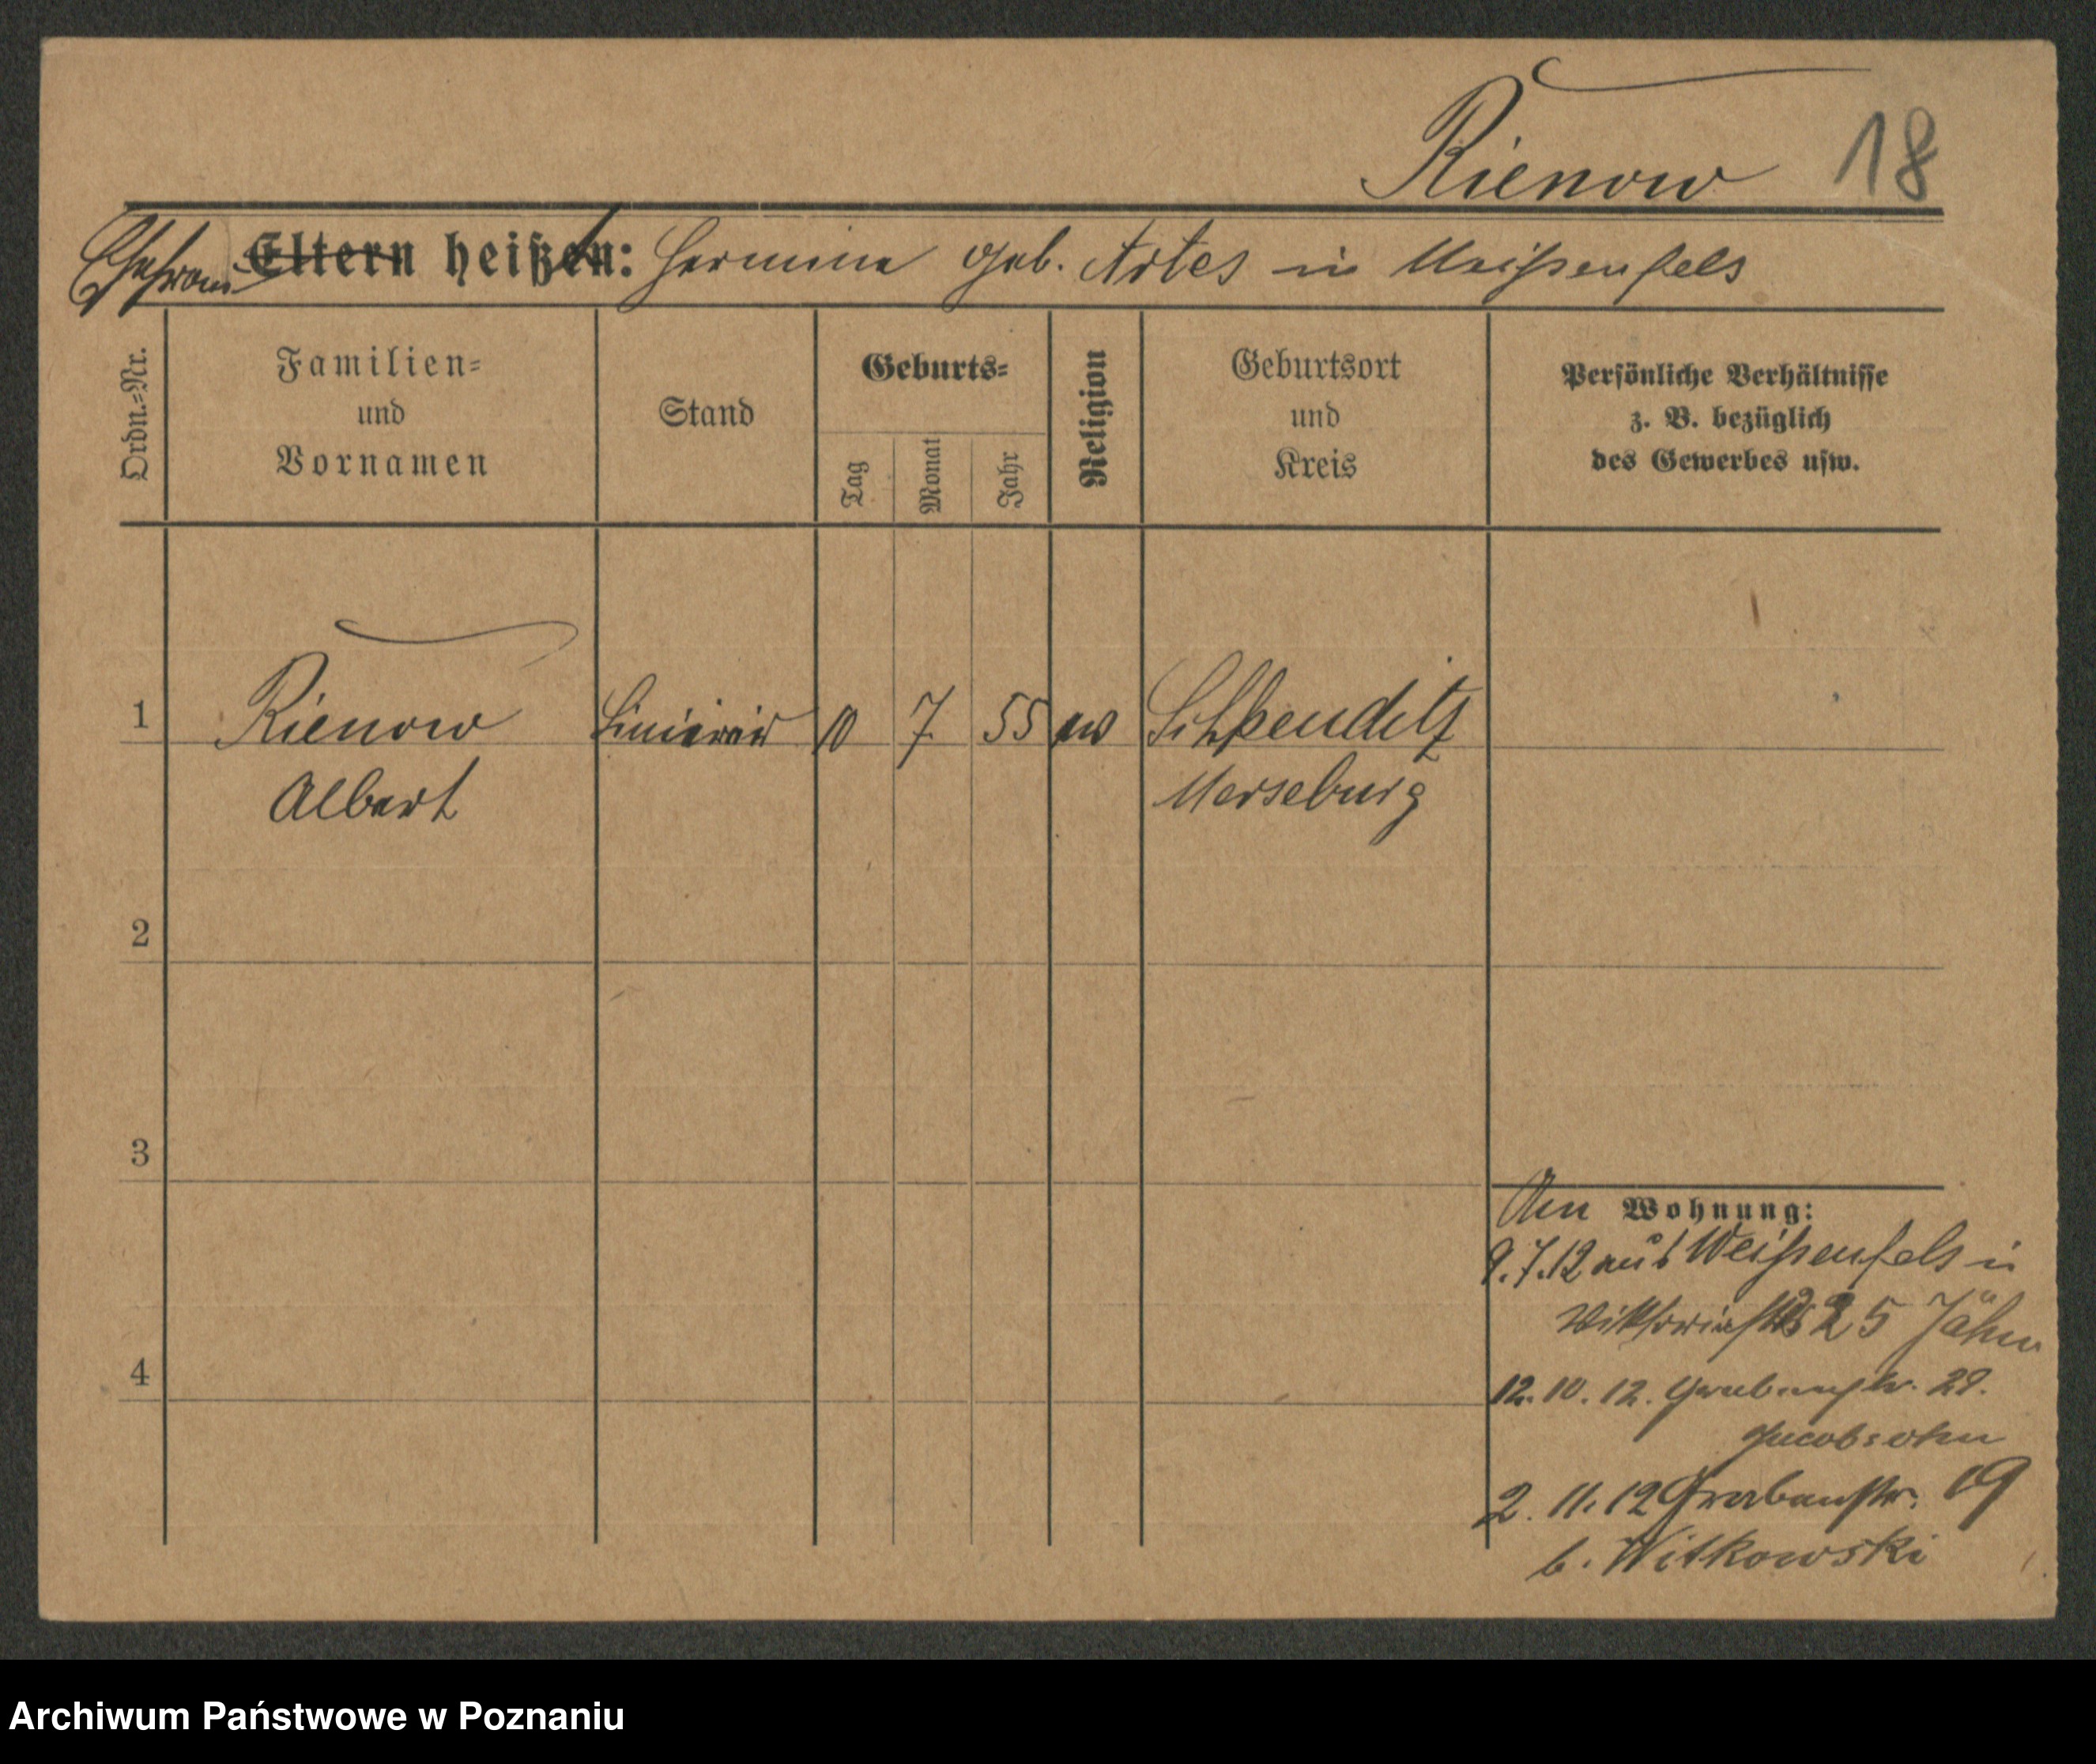 Rienow 18
Ehefrau Eltern heißen: Hermine geb. Artes in Weißenfels
Ordn.=Nr.
Familien=
und
Vornamen
Stand
Geburts=
Tag
Monat
Jahr
Religion
Geburtsort
und
Kreis
Persönliche Verhältnisse
z. B. bezüglich
des Gewerbes usw.
1 Rienow 10 7. 55 ev Schkeuditz
Albert Merseburg
2
3
4
Am Wohnung:
9.7.12 aus Weißenfels in
25 Jähn
12.10.12. Grabenstr. 29.
Jacobsohn
2.11.12 Grabenstr. 19
b. Witkowski
Archiwum Państwowe w Poznaniu